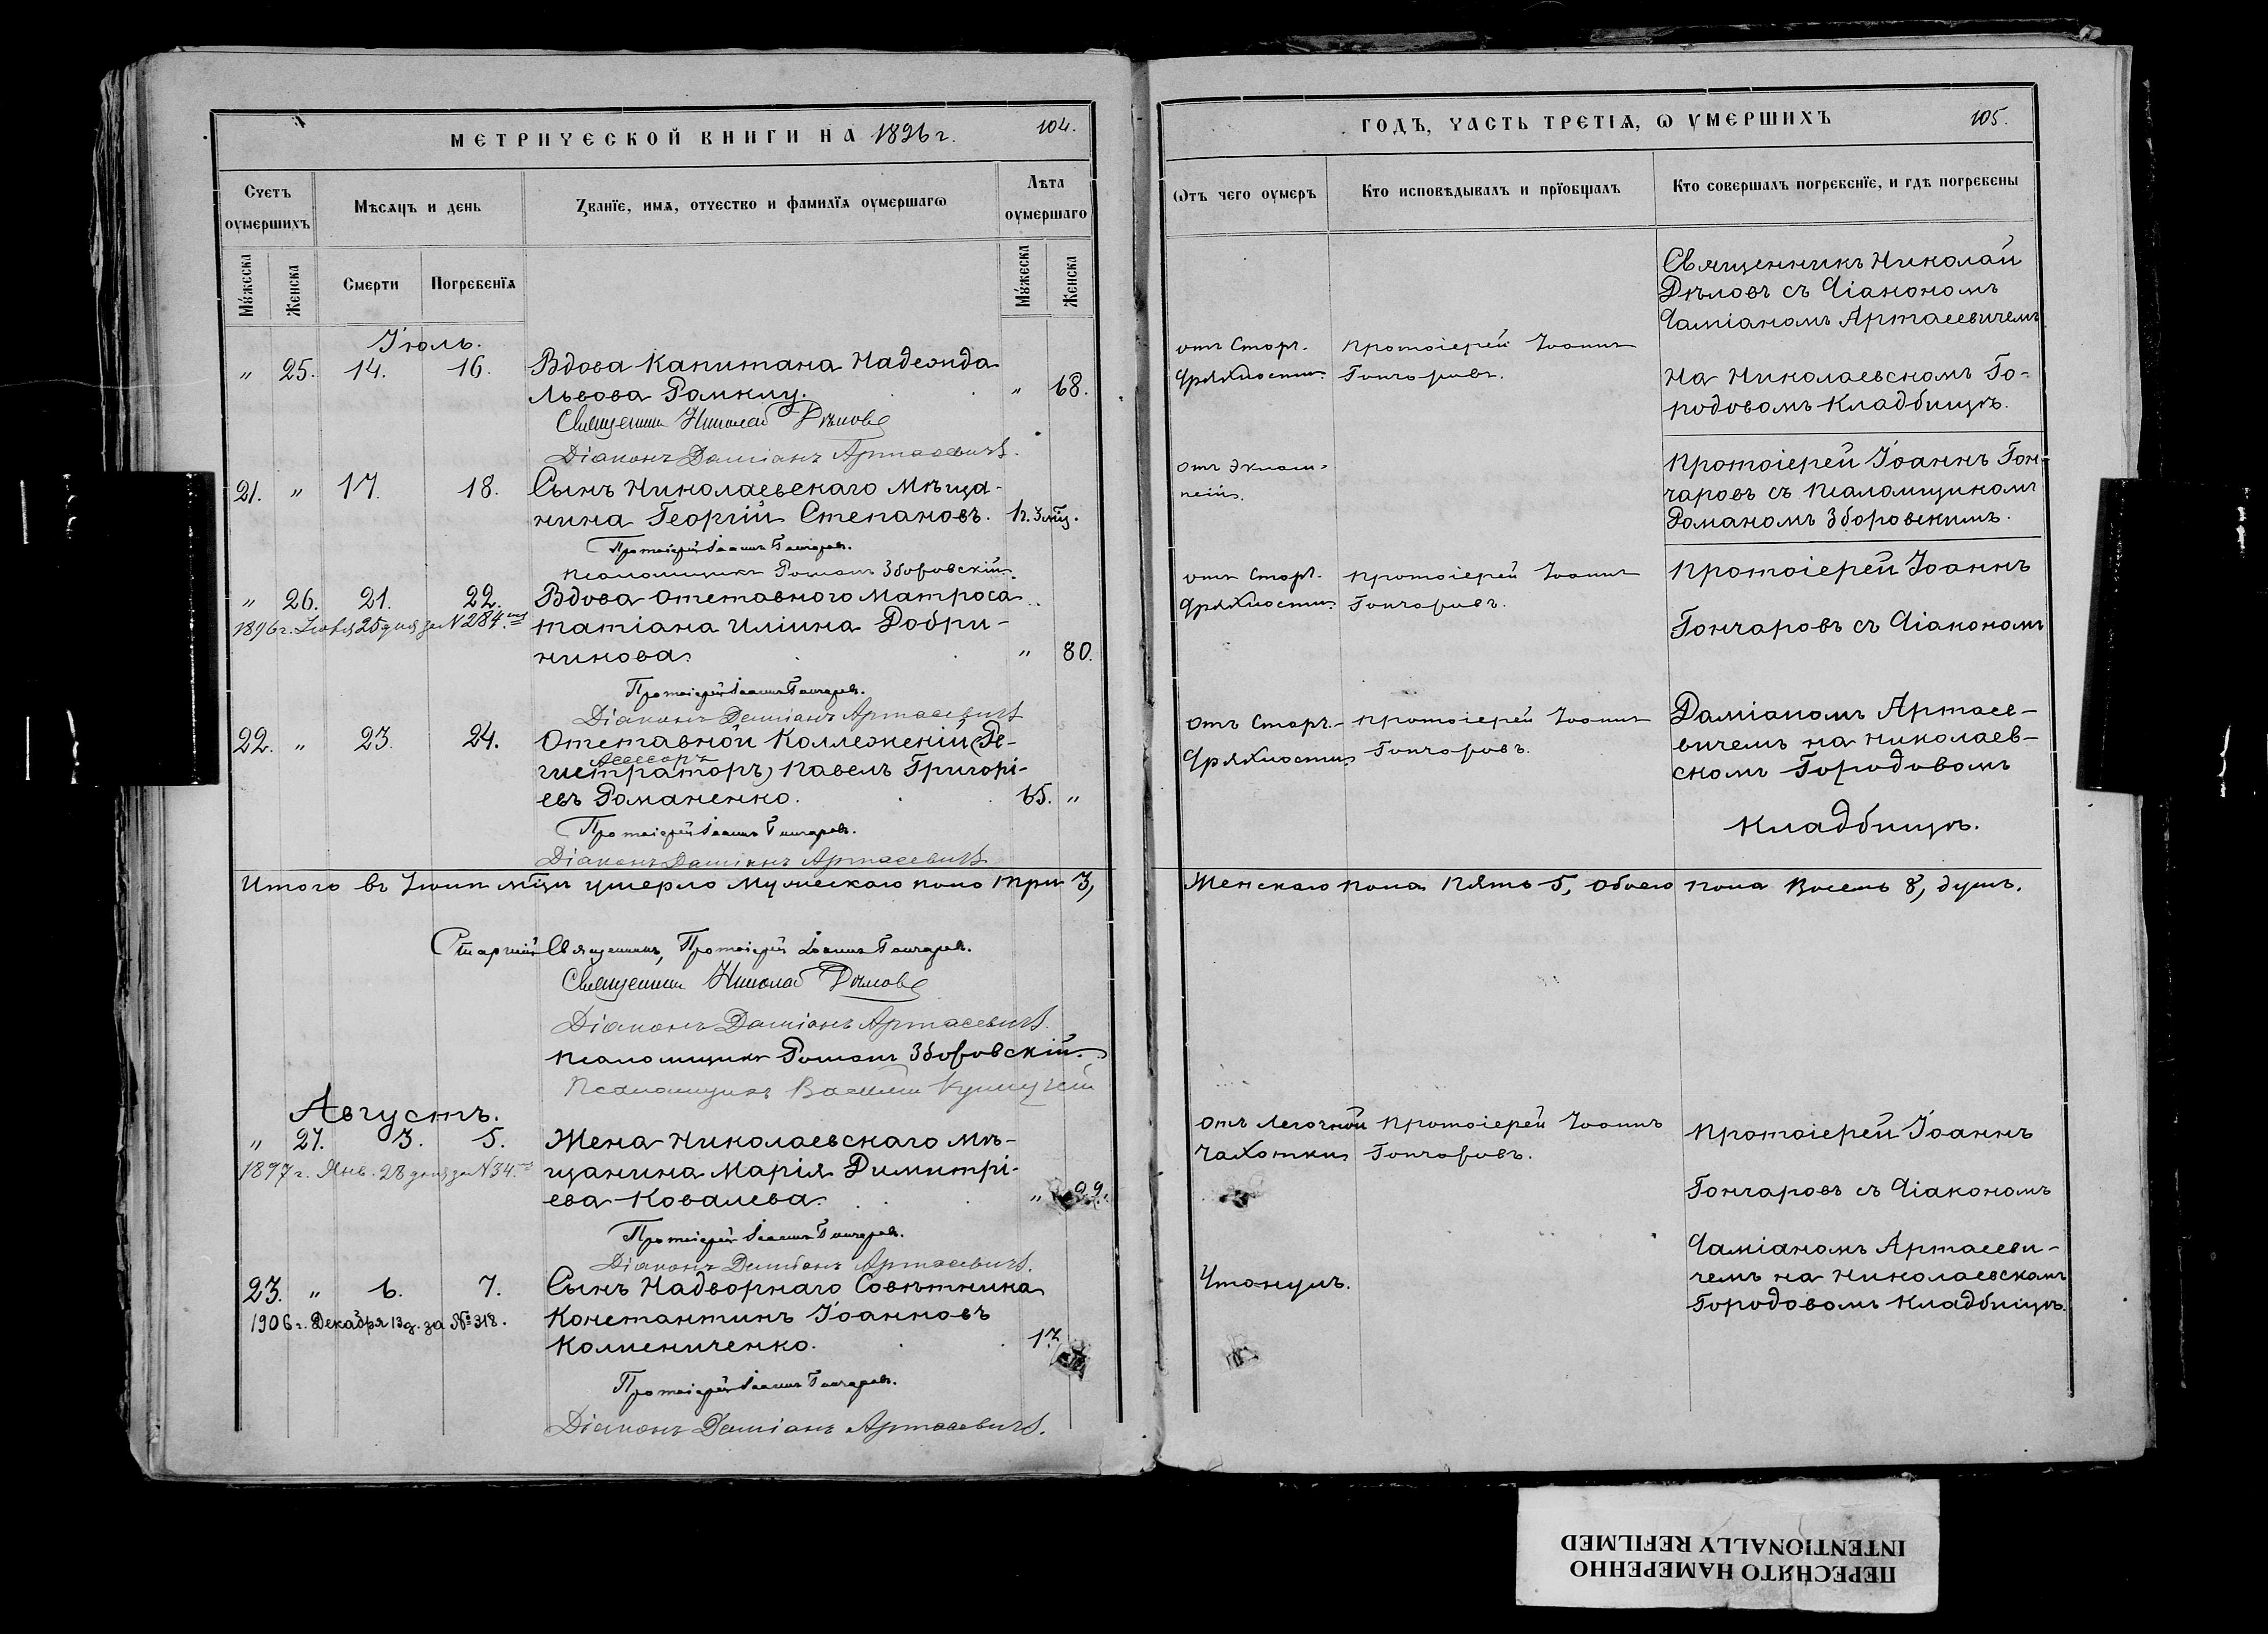 МЕТРИЧЕСКОЙ КНИГИ НА 1896 г.
104.
Счетъ оумершихъ
Мѣсяцъ и день
Званїе, имя, отчество и фамилїя оумершагѡ
Лѣта оумершаго
Мужеска
Женска
Смерти
Погребенїя
Мужеска
Женска
Іюль.
" 25. 14. 16. Вдова Капитана Надежда
Львова " 68.
Священникъ Николай Рѣловъ
Діаконъ Даміанъ Артасевичъ.
21. " 17. 18. Сынъ Николаевскаго Мѣща-
нина Георгій Степановъ.
Протоіерей Іоаннъ Гончаровъ.
Псаломщикъ Романъ Зборовскій.
" 26. 21. 22. Вдова отставного матроса
1896 г. дня за N 284. Татіана Иліина Добри-
нинова. " 80.
Протоіерей Іоаннъ Гончаровъ.
Діаконъ Даміанъ Артасевичъ
22. " 23. 24. Отставной Коллежскій (Ре-
Ассесоръ
гистраторъ) Павелъ Григорі-
евъ Романенко. 65. "
Протоіерей Іоаннъ Гончаровъ.
Діаконъ Даміанъ Артасевичъ
Итого въ Іюлѣ мцѣ умерло Мужескаго пола три 3,
Старшій Священникъ, Протоіерей Іоаннъ Гончаровъ.
Священникъ Николай Рѣловъ
Діаконъ Даміанъ Артасевичъ.
Псаломщикъ Романъ Зборовскій.
Псаломщикъ Василій
Августъ.
" 27. 3. 5. Жена Николаевскаго мѣ-
1897 г. Янв. 28 дня за N 34. щанина Марія Димитрі-
ева Ковалева. " 22.
Протоіерей Іоаннъ Гончаровъ.
Діаконъ Даміанъ Артасевичъ.
23. " 6. 7. Сынъ Надворнаго Совѣтника
1906 г. Декабря 13 д. за № 318. Константинъ Іоанновъ
Колиениченко. 17
Протоіерей Іоаннъ Гончаровъ.
Діаконъ Даміанъ Артасевичъ.
ГОДЪ, ЧАСТЬ ТРЕТІЯ, Ѡ УМЕРШИХЪ
105.
Ѡтъ чего оумеръ
Кто исповѣдывалъ и прїобщалъ
Кто совершалъ погребенїе, и гдѣ погребены
Священникъ Николай
Рѣловъ съ Діакономъ
Даміаномъ Артасевичемъ
На Николаевскомъ Го-
родовомъ Кладбищѣ.
отъ Стар.
дряхлости.
Протоіерей Іоаннъ
Гончаровъ.
отъ эклам-
псіи.
Протоіерей Іоаннъ Гон-
чаровъ съ Псаломщикомъ
Романомъ Зборовскимъ.
отъ Стар.
дряхлости.
Протоіерей Іоаннъ
Гончаровъ.
Протоіерей Іоаннъ
Гончаровъ съ Діакономъ
отъ Стар.
дряхлости
Протоіерей Іоаннъ
Гончаровъ.
Даміаномъ Артасе-
вичемъ на Николаев-
скомъ Городовомъ
Кладбищѣ.
Женскаго пола пять 5, обоего пола Восемь 8, душъ.
отъ Легочной
чахотки
Протоіерей Іоаннъ
Гончаровъ.
Протоіерей Іоаннъ
Гончаровъ съ Діакономъ
Утонулъ.
Даміаномъ Артасеви-
чемъ на Николаевскомъ
Городовомъ Кладбищѣ.
ПЕРЕСНЯТО НАМЕРЕННО
INTENTIONALLY REFILMED